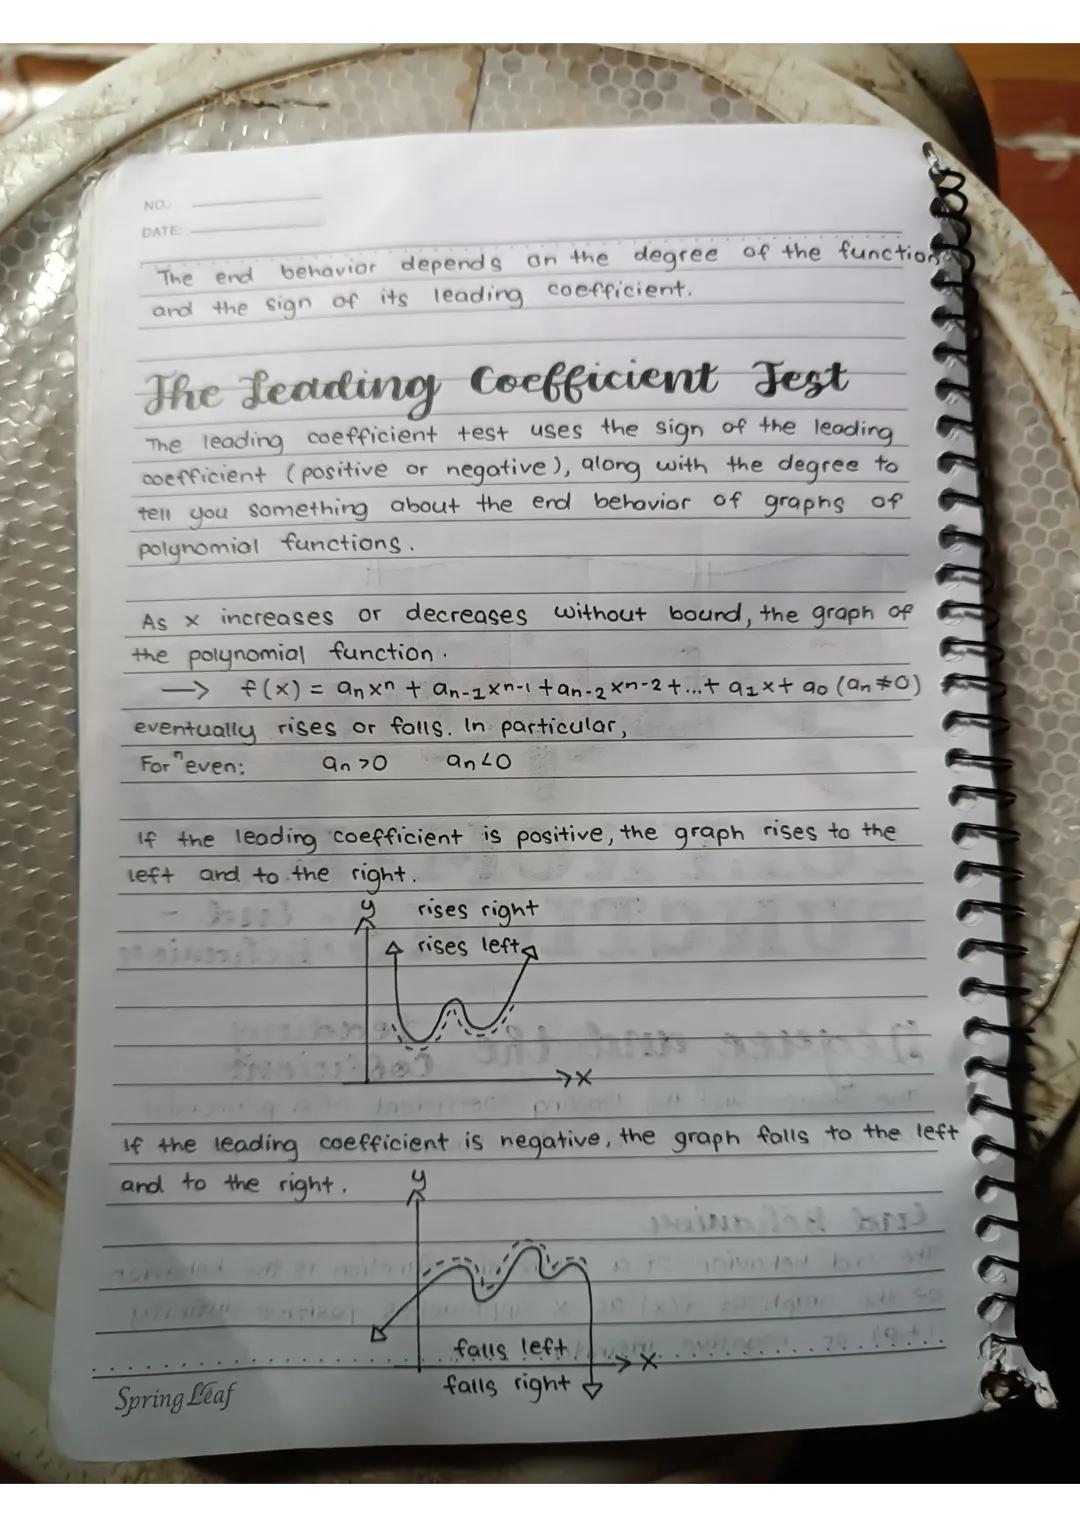 NO.:
DATE:
The end behavior depends on the degree of the function
and the sign of its leading coefficient.
The Leading Coefficient Test
The leading coefficient test uses the sign of the leading
coefficient (positive or negative), along with the degree to
tell you something about the end behavior of graphs of
polynomial functions.
As x increases or decreases without bound, the graph of
the polynomial function.
→ f(x) = aₙxⁿ + aₙ₋₁xⁿ⁻¹ + aₙ₋₂xⁿ⁻² + ... + a₁x + a₀ (aₙ ≠ 0)
eventually rises or falls. In particular,
For n even: aₙ > 0 aₙ < 0
If the leading coefficient is positive, the graph rises to the
left and to the right.
y rises right
rises left
x
If the leading coefficient is negative, the graph falls to the left
and to the right.
y
falls left
x
falls right
Spring Leaf